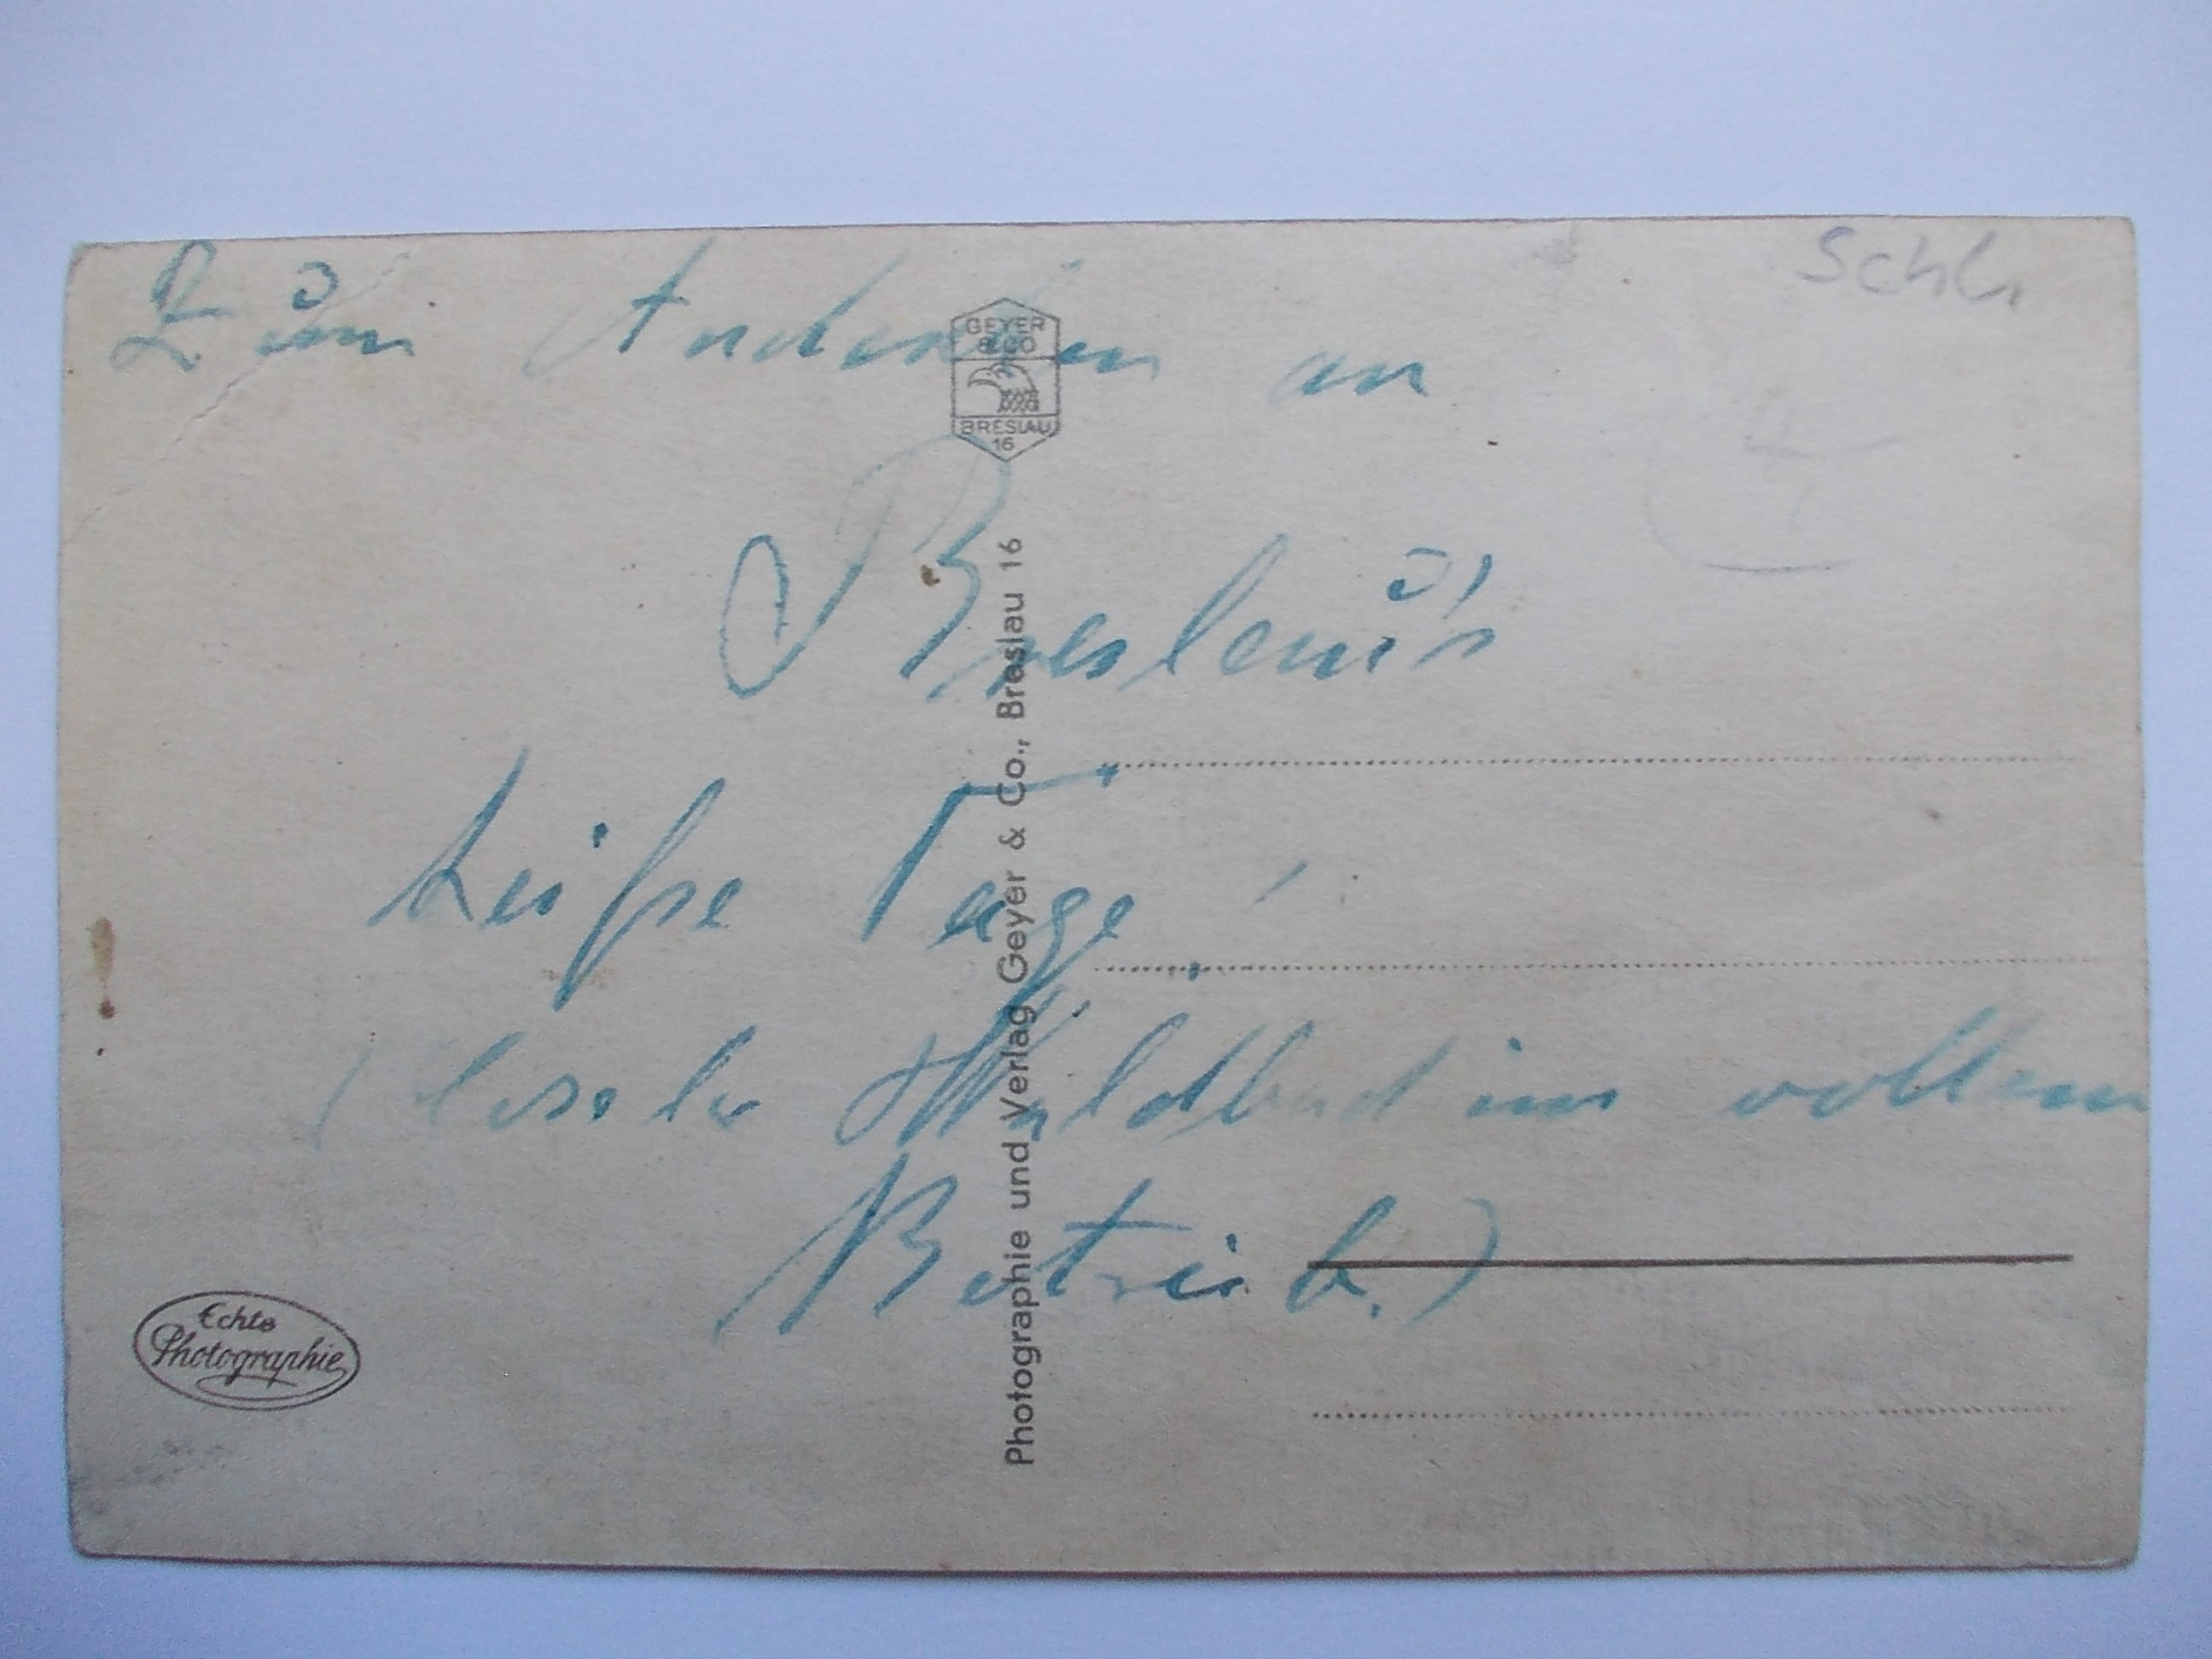 Schl.
Zum Andenken an
Breslau's
heiße Tage!
( Waldbad im vollem
Betrieb.)
GEYER
& CO
BRESLAU
16
Photographie und Verlag Geyer & Co., Breslau 16
Echte
Photographie